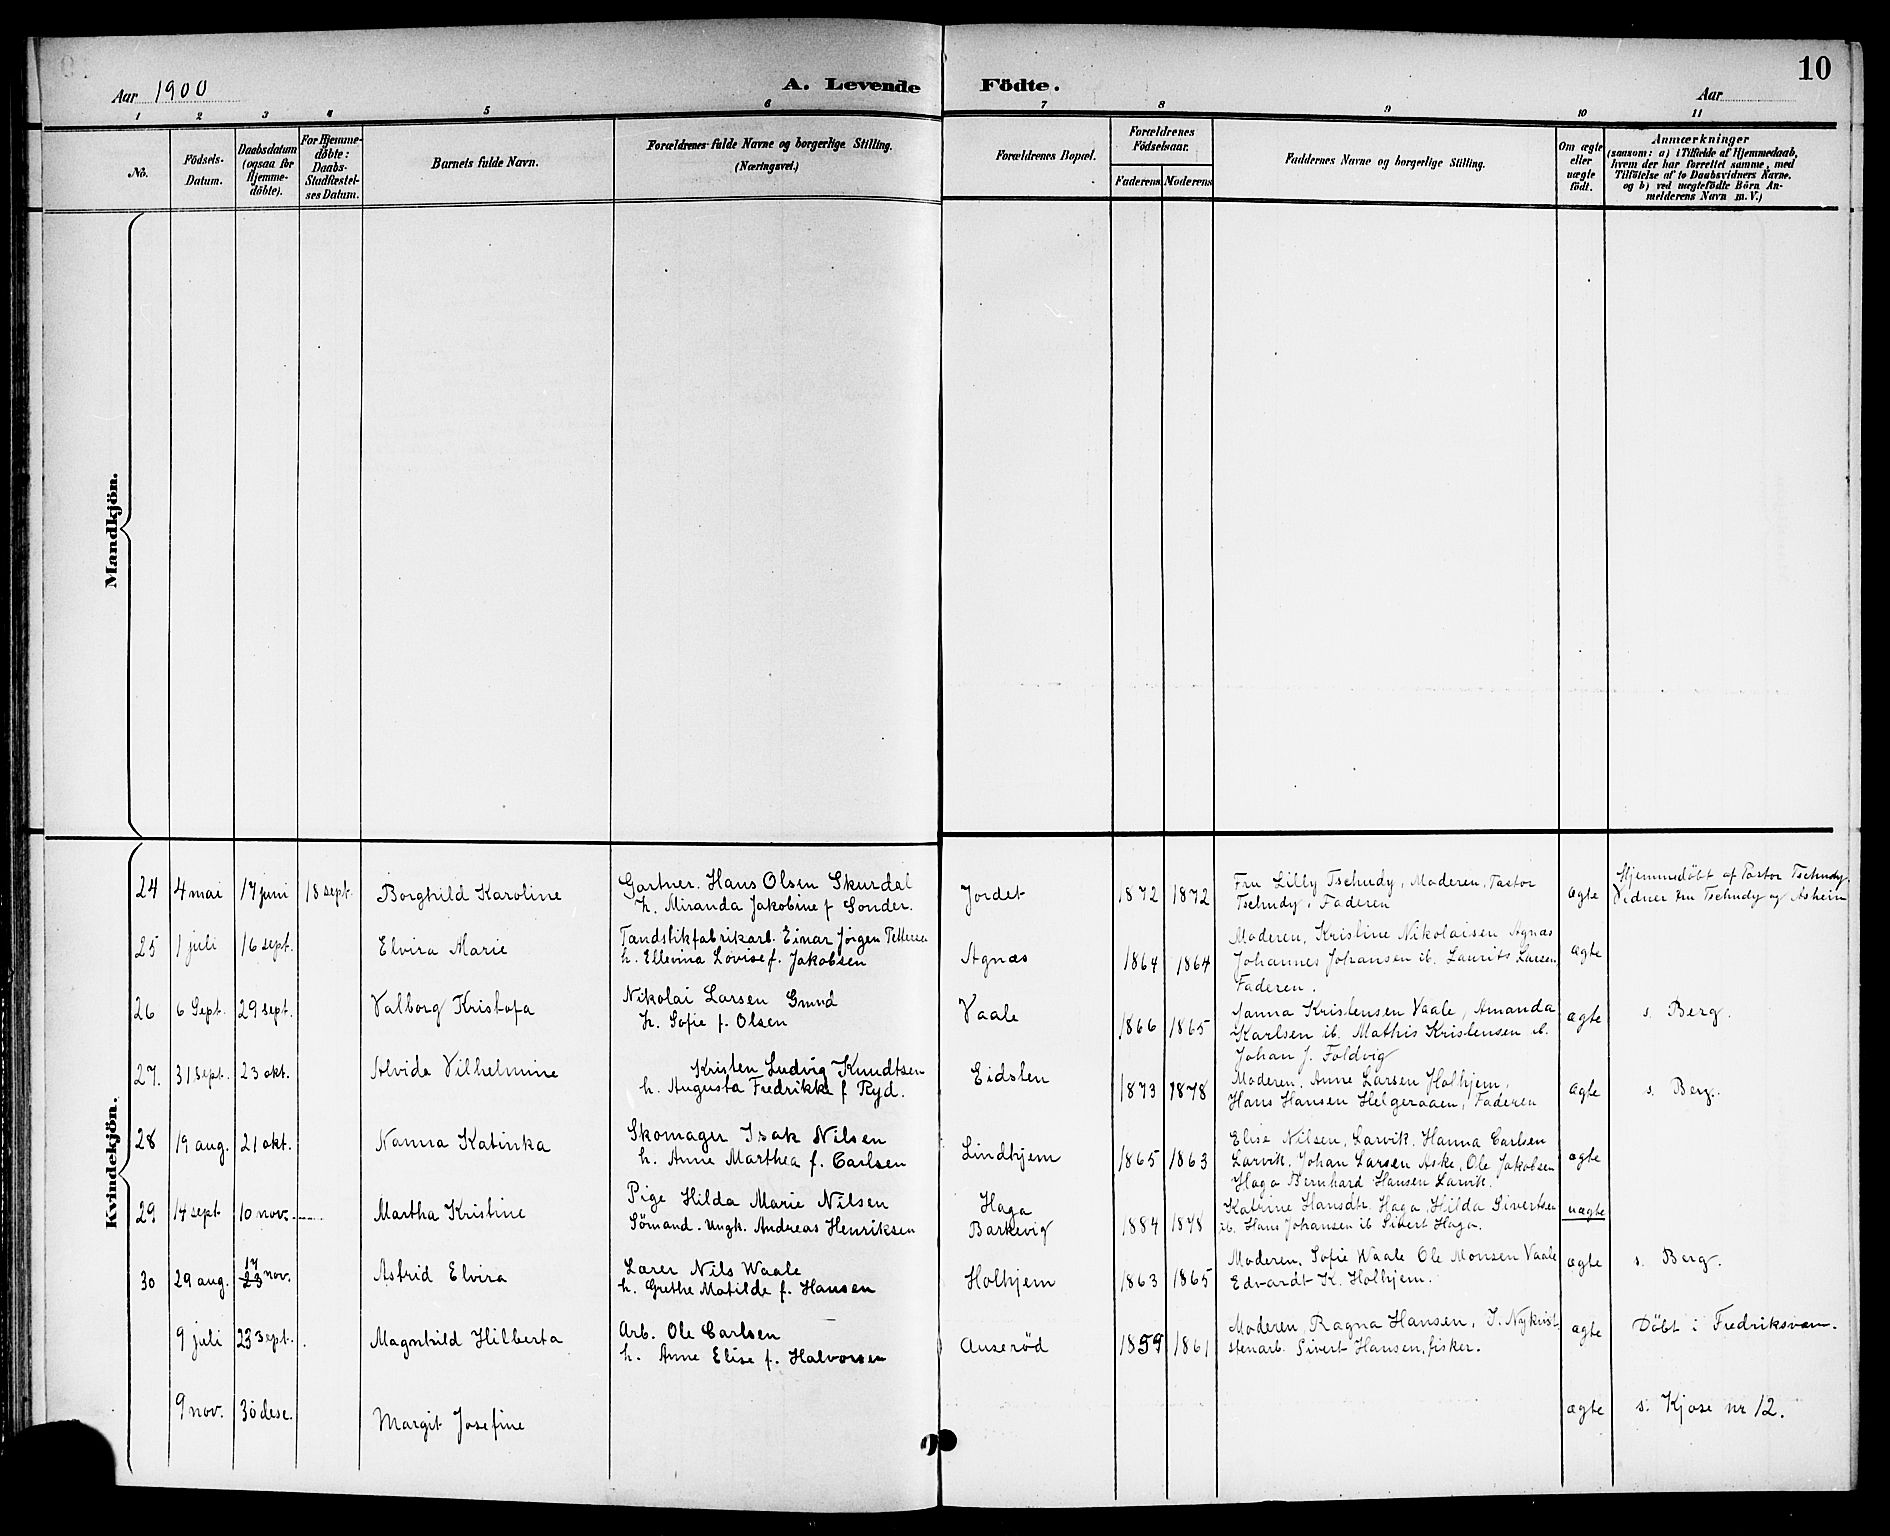 10
Aar 1900
A. Levende Födte.
Aar
1 2 3 4 5 6 7 8 9 10 11
No.
Födsels-Datum.
Daabsdatum (ogsaa for Hjemme-döbte).
For Hjemme-döbte: Daabs-Stadfæstel-ses Datum.
Barnets fulde Navn.
Forældrenes fulde Navne og borgerlige Stilling.
(Næringsvei.)
Forældrenes Bopæl.
Forældrenes Födselsaar.
Faderens Moderens
Faddernes Navne og borgerlige Stilling.
Om ægte eller uægte födt.
Anmærkninger
(saasom: a) i Tilfælde af Hjemmedaab,
hvem der har forrettet samme, med
Tilföielse af to Daabsvidners Navne.
og b) ved uægtefödte Börn An-
melderens Navn m. V.)
Mandkjön.
Kvindekjön.
24 4 mai 17 juni 18 sept. Borghild Karoline
Gartner. Hans Olsen Skurdal
h. Miranda Jakobine f Sonder.
Jordet 1872 1872
Fru Lilly Tschudy, Moderen, Pastor
Tschudy, Faderen
ægte
Hjemmedøbt af Pastor Tschudy
Vidner fru Tschudy og Asheim
25 1 juli 16 sept. Elvira Marie
Tandstikfabrikarb. Einar Jörgen Petterse
h. Ellevina Lovise f. Jakobsen
Agnæs 1864 1864
Moderen, Kristine Nikolaisen Agnæs
Johannes Johansen ib. Laurits Larsen,
Faderen.
ægte
26 6 Sept. 29 sept. Valborg Kristofa
Nikolai Larsen Grund
h. Sofie f. Olsen
Vaale 1866 1865
Janna Kristensen Vaale, Amanda
Karlsen ib. Mathis Kristensen ib.
Johan J. Foldvig
ægte s. Berg.
27. 31 sept. 23 okt. Alvida Vilhelmine
Kristen Ludvig Knudtsen
h. Augusta Fredrikke f Ryd.
Eidsten 1873 1878
Moderen, Anne Larsen Holhjem,
Hans Hansen Helgeraaen, Faderen
ægte s. Berg.
28 19 aug. 21 okt. Nanna Katinka
Skomager Isak Nilsen
h. Anne Marthea f. Carlsen
Lindhjem 1865 1863
Elise Nilsen, Larvik. Hanna Carlsen
Larvik. Johan Larsen Aske, Ole Jakobsen
Haga Bernhard Hansen Larvik.
ægte
29 14 sept 10 nov. Martha Kristine
Pige Hilda Marie Nilsen
Sömand. Ungk. Andreas Henriksen
Haga
Barkevig
1884 1878
Katrine Hansdtr. Haga, Hilda Sivertsen
ib. Hans Johansen ib Sivert Haga.
uægte
30 29 aug. 17 23 nov. Astrid Elvira
Lærer Nils Waale
h. Grethe Matilde f. Hansen
Holhjem 1863 1865
Moderen, Sofie Waale Ole Monsen Vaale
Edvardt K. Holhjem.
ægte s. Berg.
9 juli 23 sept. Magnhild Hilberta
Arb. Ole Carlsen
h. Anne Elise f. Halvorsen
Auseröd 1859 1861
Moderen, Ragna Hansen, J. Nykvist
stenarb. Sivert Hansen, fisker.
ægte Döbt i Fredriksværn.
9 nov. 30 desc. Margit Josefine
ægte s. Kjose nr 12.